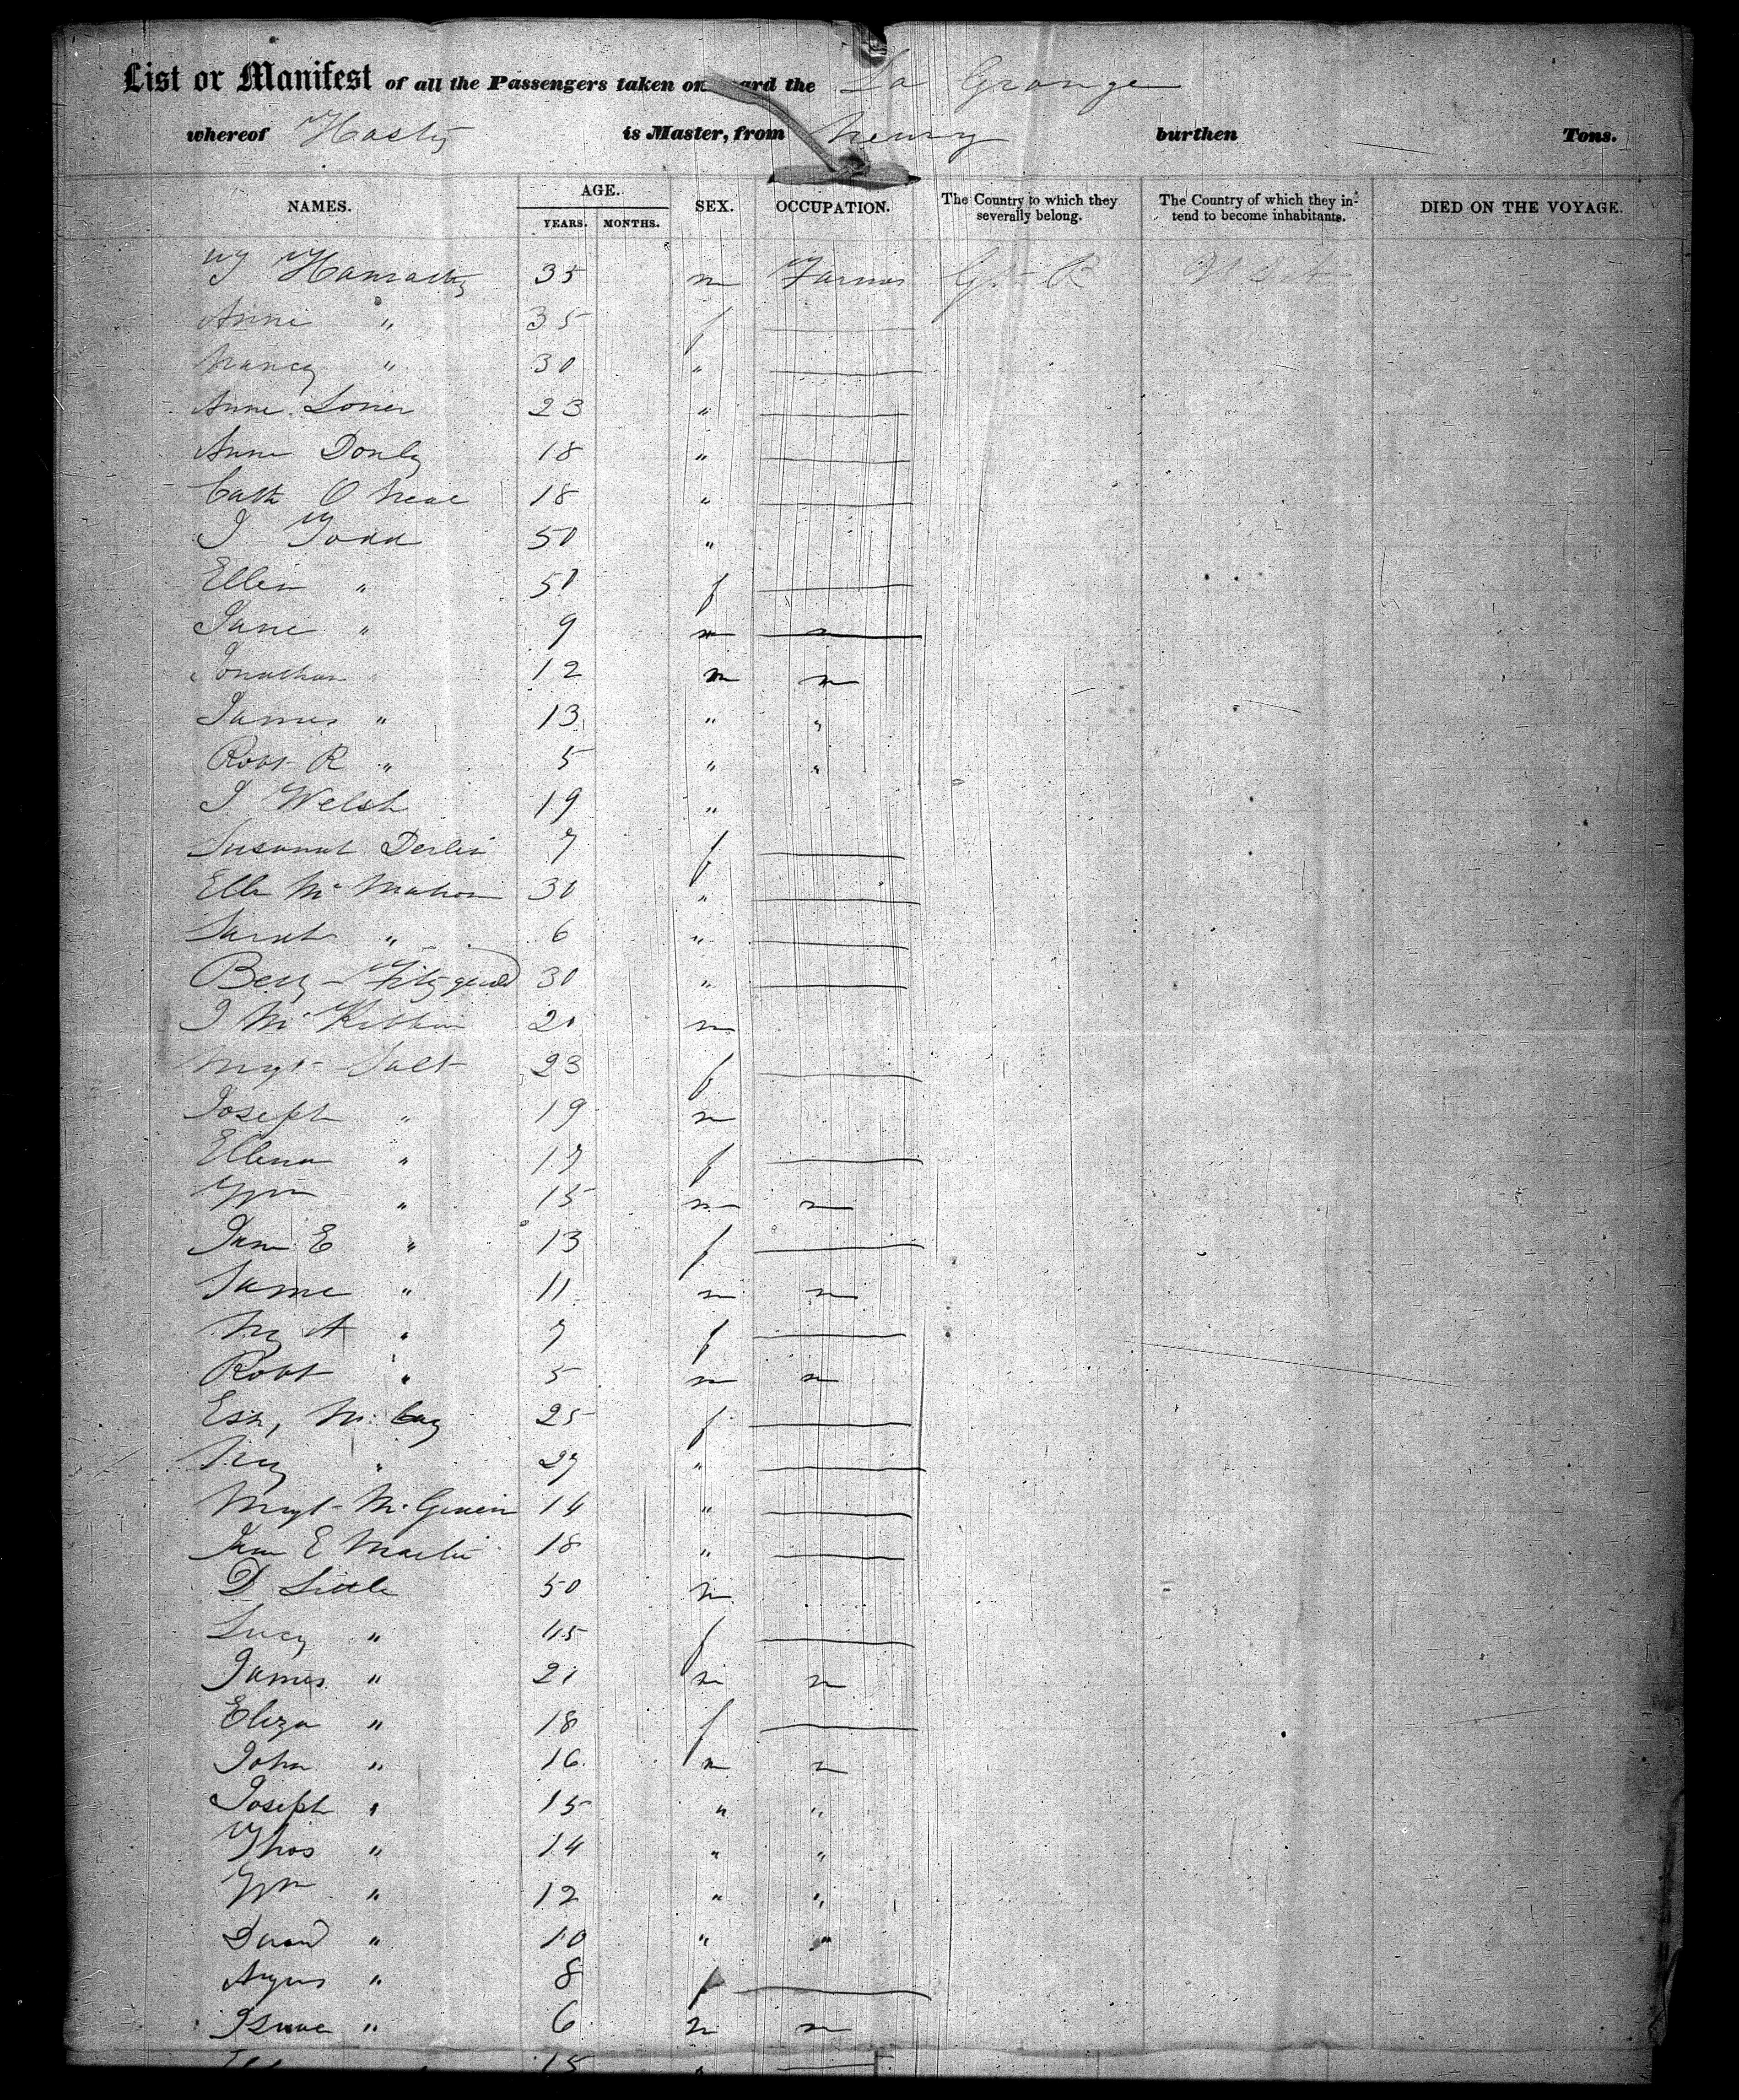 List or Manifest of all the Passengers taken on board the La Grange
whereof Hasty is Master, from Newry burthen Tons.
NAMES. AGE. YEARS. MONTHS. SEX. OCCUPATION. The Country to which they severally belong. The Country of which they intend to become inhabitants. DIED ON THE VOYAGE.
Hanratty 35 m Farmer Gt B U S A
Anne " 35 f
Nancy " 30 "
Anne 23 "
Anne Donly 18 "
Cath O Neal 18 "
J Todd 50 "
Ellen " 50 f
Jane " 9 m
Jonathan " 12 m
James " 13 " "
Robt R " 5 " "
J Welsh 19 "
Susanah 7 f
Elln McMahon 30 "
Sarah " 6 "
Betty Fitzgerald 30 "
J McKibbin 20 m
Mgt Salt 23 f
Joseph " 19 m
Ellena " 17 f
Wm " 15 m
Jane E " 13 f
" 11 m
My A " 7 f
Robt " 5 m
25 f
My " 27 "
Mgt 14 "
Jane E Martin 18 "
D Little 50 m
Lucy " 45 f
James " 21 m
Eliza " 18 f
John " 16 m
Joseph " 15 " "
Thos " 14 " "
Wm " 12 " "
David " 10 " "
" 8 f
Isaac " 6 m
15